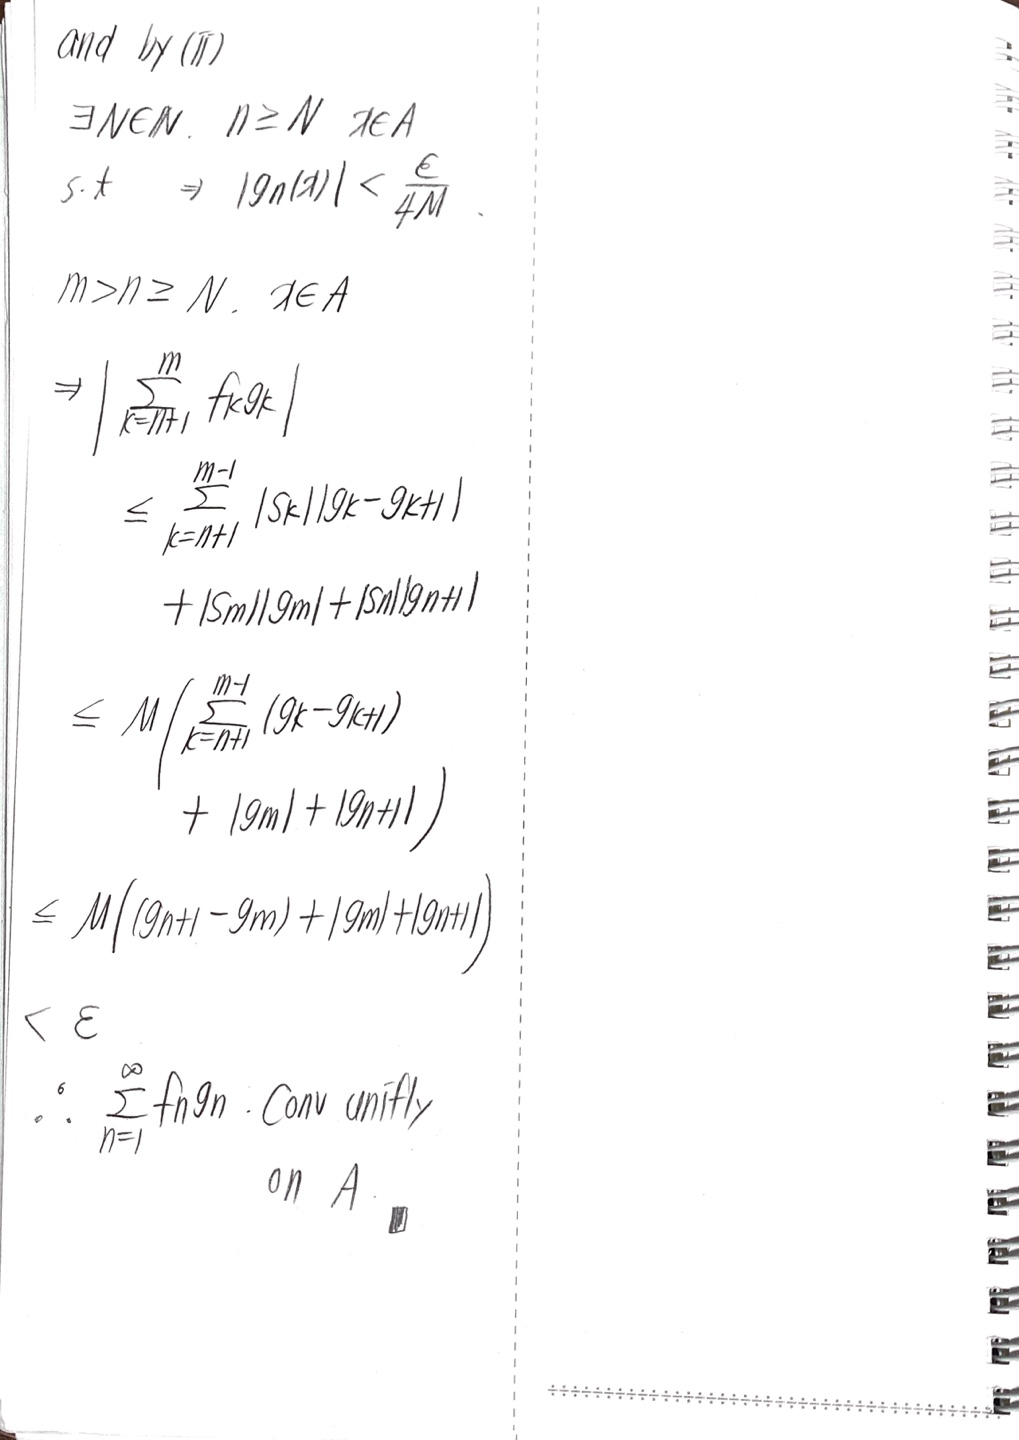 and by (ii)
∃N∈ℕ. n≥N x∈A
s.t ⇒ |gn(x)| < ε/4M .
m>n≥N. x∈A
⇒ |∑_{k=n+1}^{m} fkgk|
≤ ∑_{k=n+1}^{m-1} |Sk||gk-gk+1|
+|Sm||gm|+|Sn||gn+1|
≤ M(∑_{k=n+1}^{m-1} (gk-gk+1)
+ |gm| + |gn+1|)
≤ M((gn+1-gm)+|gm|+|gn+1|)
< ε
∴ ∑_{n=1}^{∞} fngn : Conv unifly
on A.